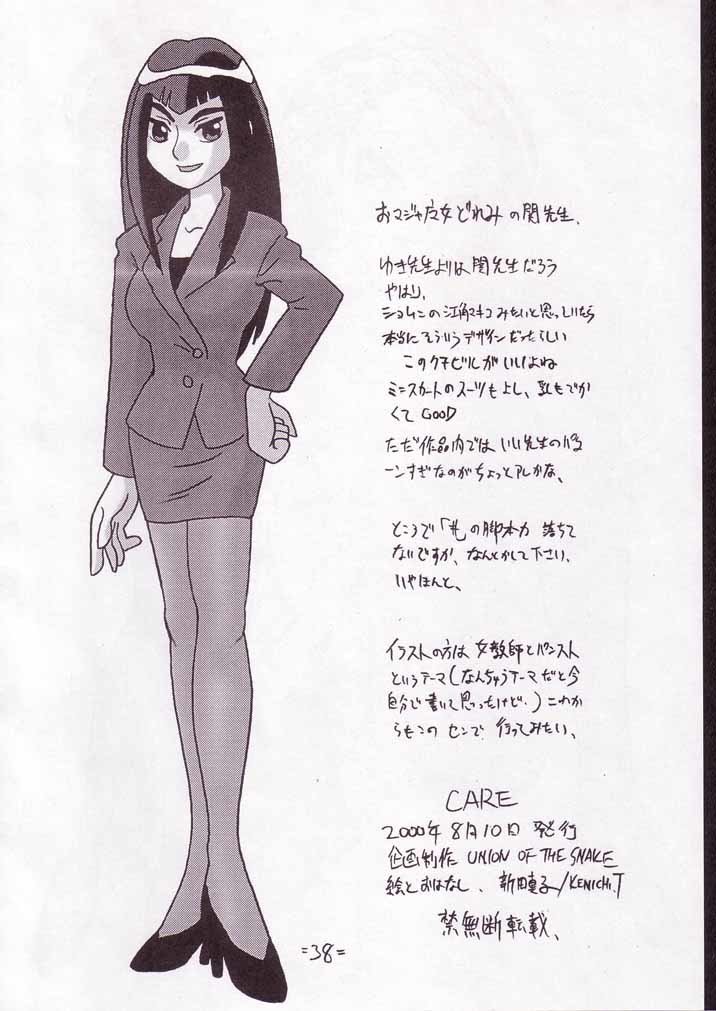 おジャ魔女どれみの関先生、
ゆき先生よりは関先生だろう
やはり、
ショムニの江角マキコみたいと思っていたら
本当にそういうデザインだったらしい
このクチビルがいいよね
ミニスカートのスーツもよし、乳もでか
くてGOOD
ただ作品内ではいい先生のパタ
ーンすぎなのがちょっとアレかな、
ところで「#の脚本力 落ちて
ないですか、なんとかして下さい、
いやほんと、
イラストの方は女教師とパンスト
というテーマ(なんちゅうテーマだと今
自分で書いて思ったけど・)これか
らもこのセンで行ってみたい、
CARE
2000年8月10日 発行
企画制作 UNION OF THE SNAKE
絵とおはなし、新田真子/KENICHI.T
禁無断転載、
=38=